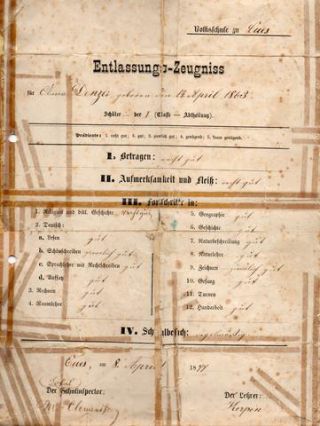 Volksschule zu Cues
Entlassungs-Zeugniss
für Denzer geboren den 14 April 1863
Schüler der I (Classe – Abtheilung).
Prädicate: 1. recht gut; 2. gut; 3. ziemlich gut; 4. genügend; 5. kaum genügend.
I. Betragen: recht gut
II. Aufmerksamkeit und Fleiß: recht gut
III. Fortschritte in:
1. Religion und bibl. Geschichte recht gut
2. Deutsch:
a. Lesen gut
b. Schönschreiben ziemlich gut
c. Sprachlehre mit Rechtschreiben gut
d. Aufsatz gut
3. Rechnen gut
4. Raumlehre gut
5. Geographie gut
6. Geschichte gut
7. Naturbeschreibung gut
8. Naturlehre gut
9. Zeichnen ziemlich gut
10. Gesang gut
11. Turnen
12. Handarbeit gut
IV. Schulbesuch: regelmäßig
Cues, am 8. April 1877
Der Schulinspector.
Der Lehrer:
Kerpen